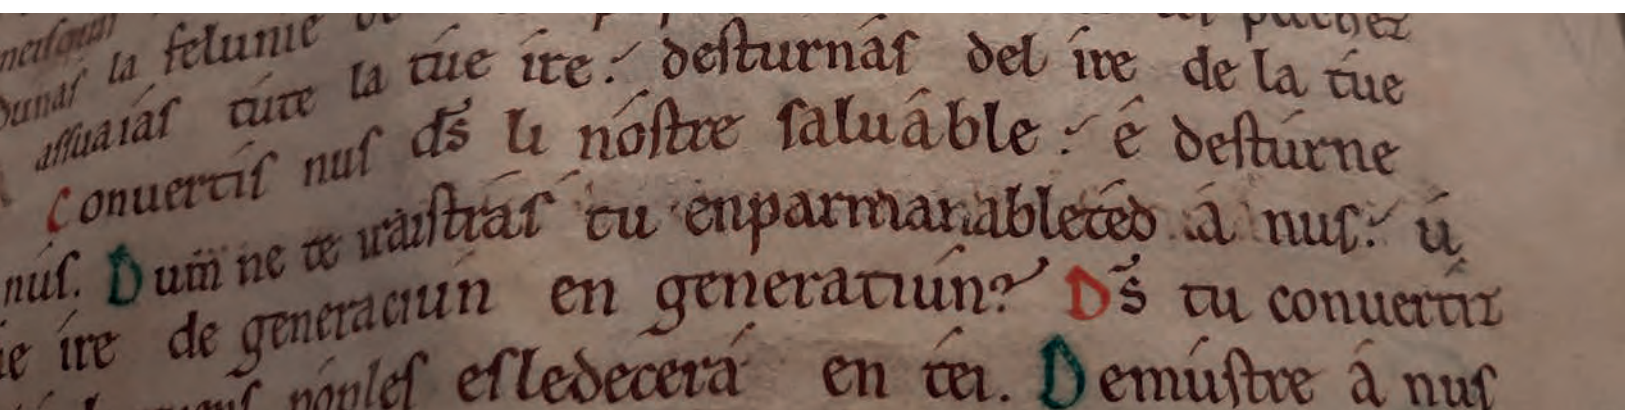 la felunie
aſſuaiáſ túte la túe íre: deſturnáſ del íre de la túe
Conuertíſ nuſ dš li nóſtre ſaluáble : é deſtúrne
núſ. Dum̄ ne te iráiſtráſ tu enparmanabletéd á nuſ: ú
íre de generaciún en generatiún? Dš tu conuertíz
pópleſ eſledecerá en téi. Demúſtre á nuſ